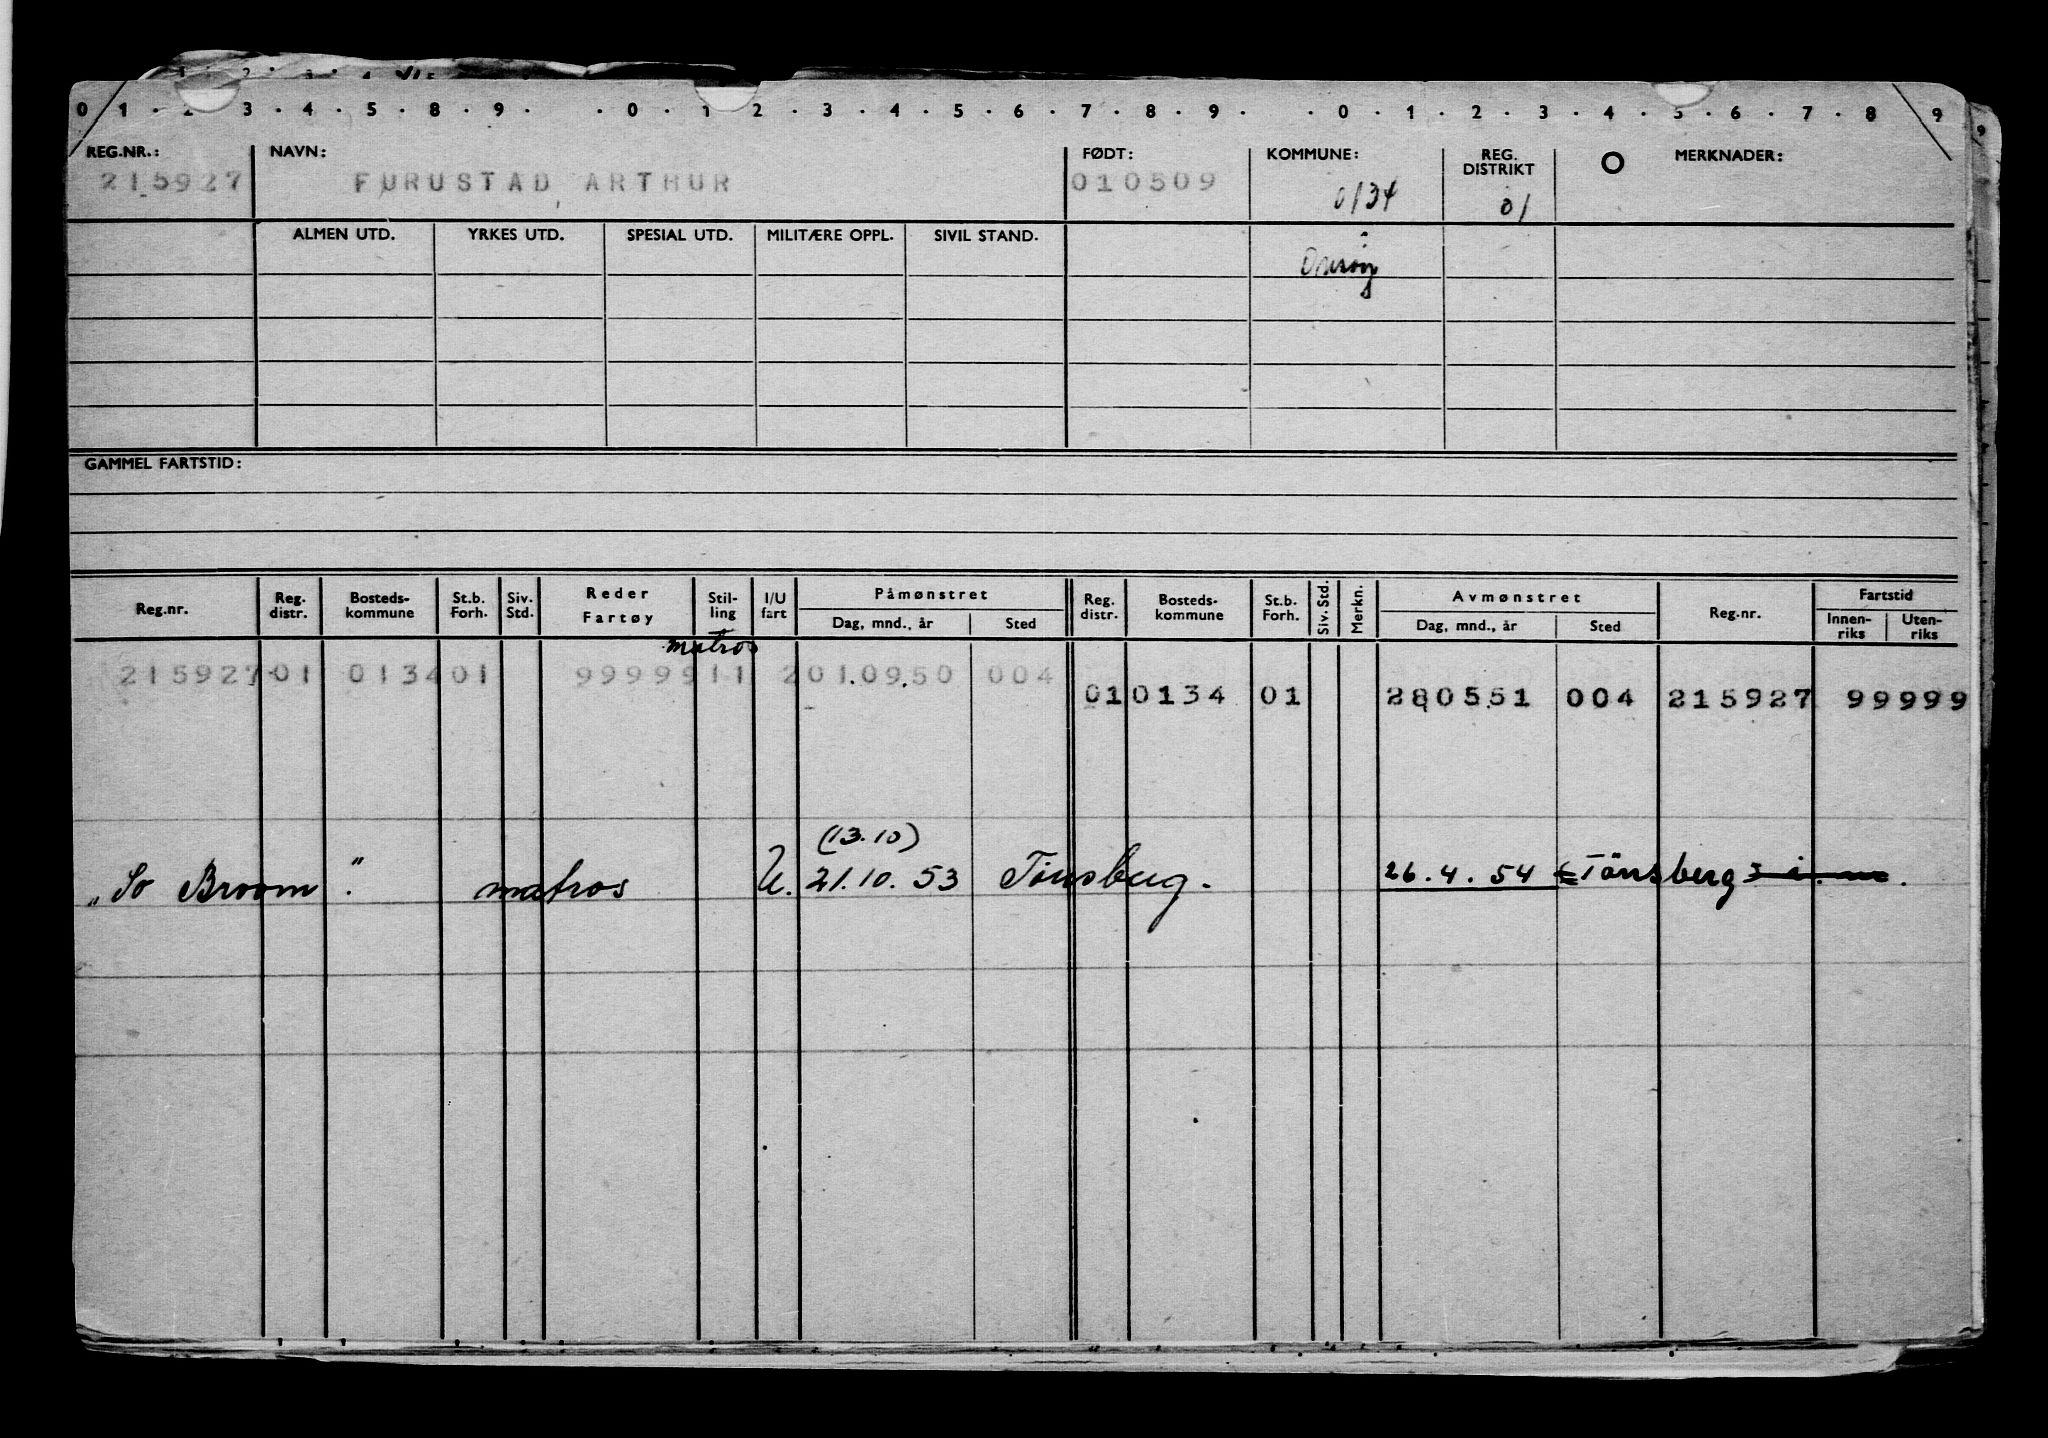 0 1 . 2 3 . 4 . 5 . 8 . 9 . . 0 . 1 2 . 3 . 4 . 5 . 6 . 7 . 8 . 9 . . 0 . 1 . 2 . 3 . 4 . 5 . 6 . 7 . 8 9
REG.NR.: NAVN: FØDT: KOMMUNE: REG. DISTRIKT MERKNADER:
215927 FURUSTAD ARTHUR 010509 0134 01
ALMEN UTD. YRKES UTD. SPESIAL UTD. MILITÆRE OPPL. SIVIL STAND.
Onsøy
GAMMEL FARTSTID:
Reg.nr. Reg. distr. Bosteds- kommune St.b. Forh. Siv. Std. Reder Fartøy Stil- ling I/U fart Påmønstret Dag, mnd., år Sted Reg. distr. Bosteds- kommune St.b. Forh. Siv. Std. Merkn. Avmønstret Dag, mnd., år Sted Reg.nr. Fartstid Innen- riks Uten- riks
matros
215927 01 0134 01 9999911 2 01.09.50 004
01 0134 01 280551 004 215927 99999
(13.10)
„So Broom" matros U. 21.10.53 Tønsberg. 26.4.54 Tönsberg